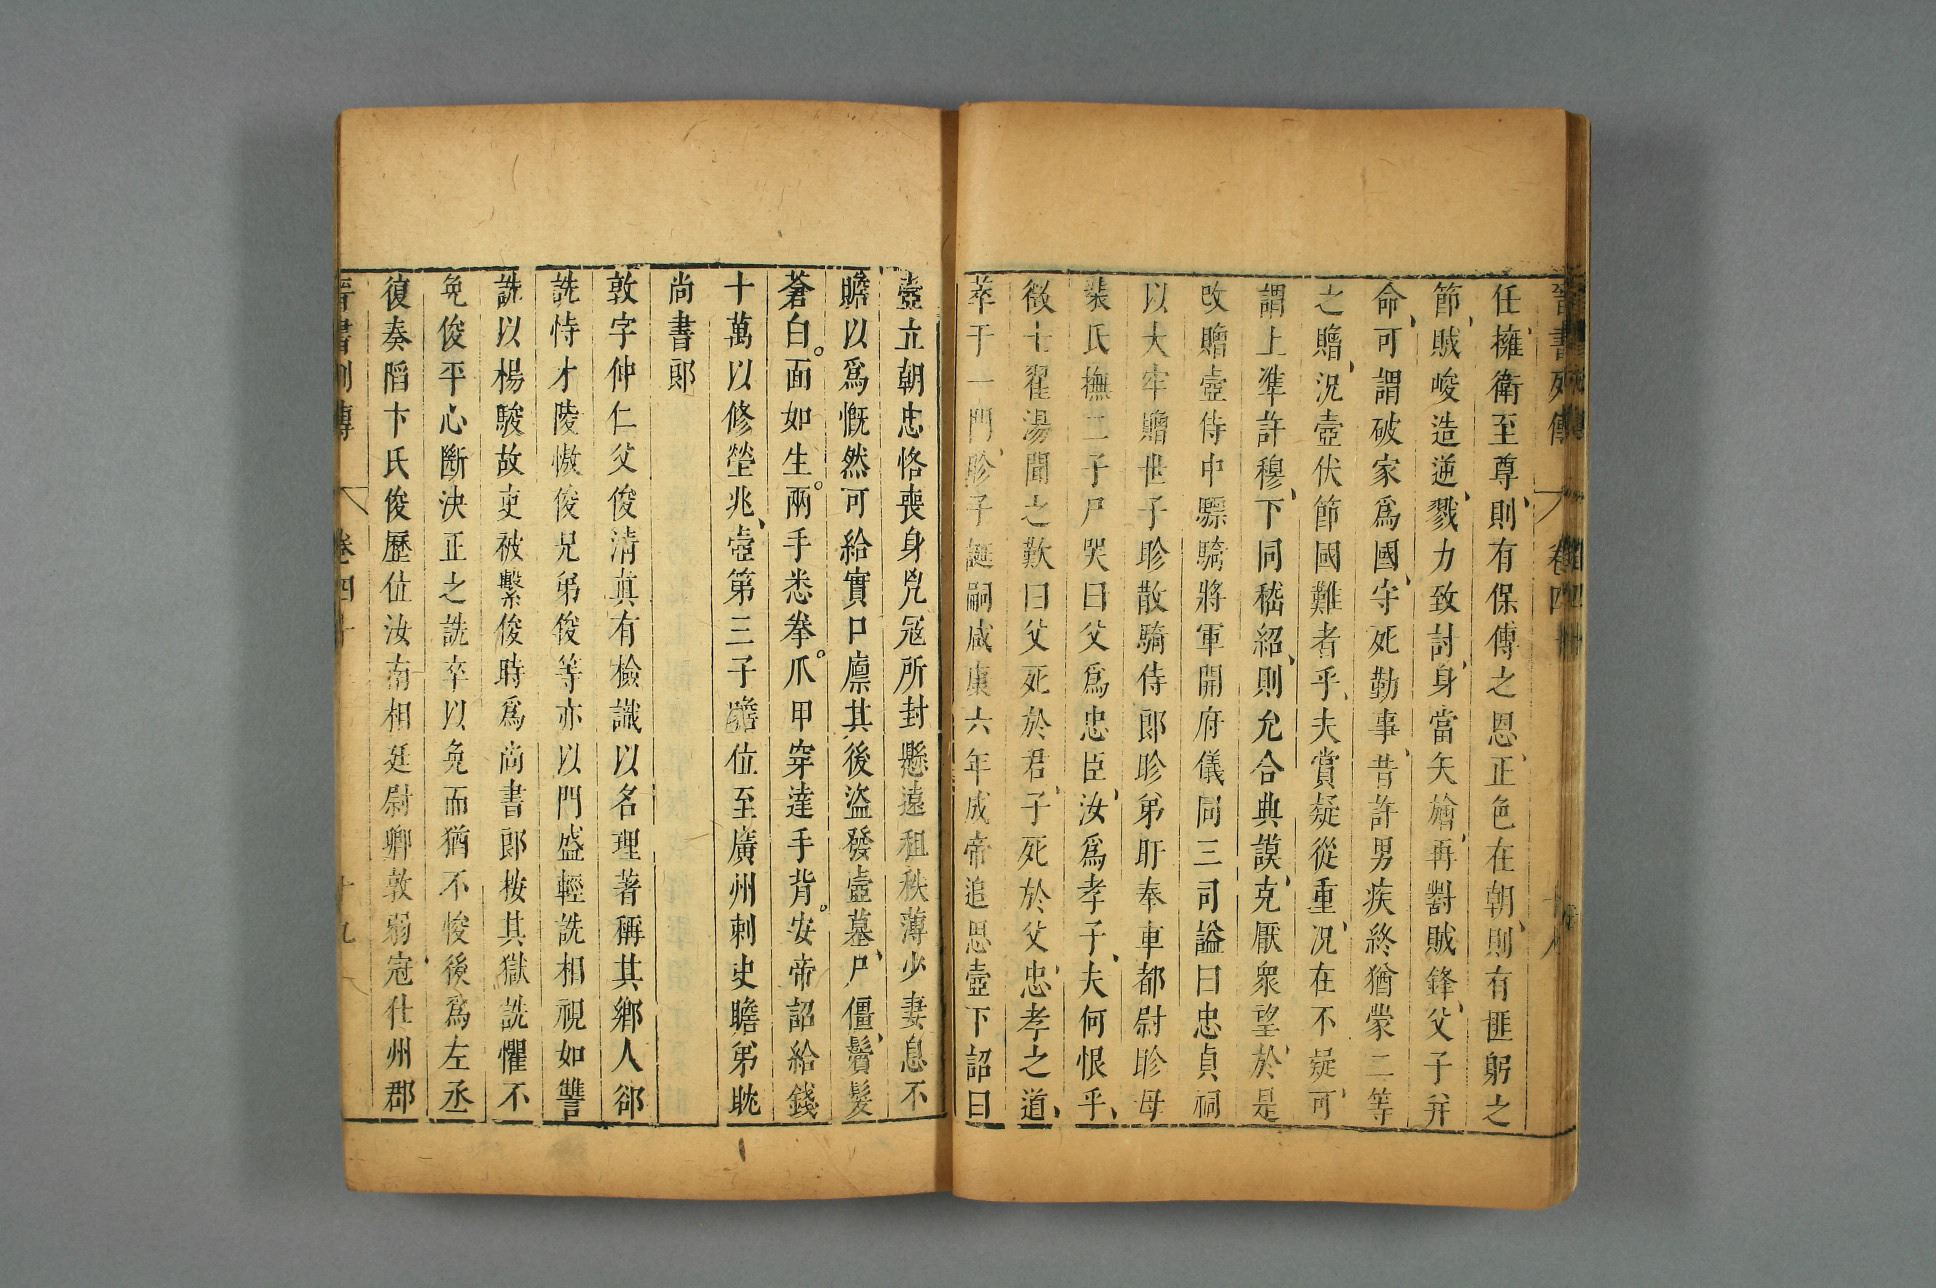 晉書列傳 卷四十
任擁衛至尊則有保傅之恩正色在朝則有匪躬之
節賊峻造逆戮力致討身當矢旝再對賊鋒父子并
命可謂破家爲國守死勤事昔許男疾終猶蒙二等
之贈况壼伏節國難者乎夫賞疑從重况在不疑可
謂上準許穆下同嵇紹則允合典謨克厭衆望於是
改贈壼侍中驃騎將軍開府儀同三司謚曰忠貞祠
以大牢贈世子眕散騎侍郎眕弟盱奉車都尉眕母
裴氏撫二子尸哭曰父爲忠臣汝爲孝子夫何恨乎
徵士翟湯聞之歎曰父死於君子死於父忠孝之道
萃于一門眕子誕嗣咸康六年成帝追思壼下詔曰
壼立朝忠恪喪身兇冦所封懸遠租秩薄少妻息不
贍以爲慨然可給實口廪其後盜發壼墓尸僵鬢髮
蒼白面如生兩手悉拳爪甲穿達手背安帝詔給錢
十萬以修塋兆壼第三子瞻位至廣州刺史瞻弟眈
尚書郎
敦字仲仁父俊清真有檢識以名理著稱其鄉人郤
詵恃才陵慠俊兄弟俊等亦以門盛輕詵相視如讐
詵以楊駿故吏被繫俊時爲尚書郎按其獄詵懼不
免俊平心斷決正之詵卒以免而猶不悛後爲左丞
復奏陷卞氏俊歷位汝南相廷尉卿敦弱冠仕州郡
晉書列傳 卷四十 十九